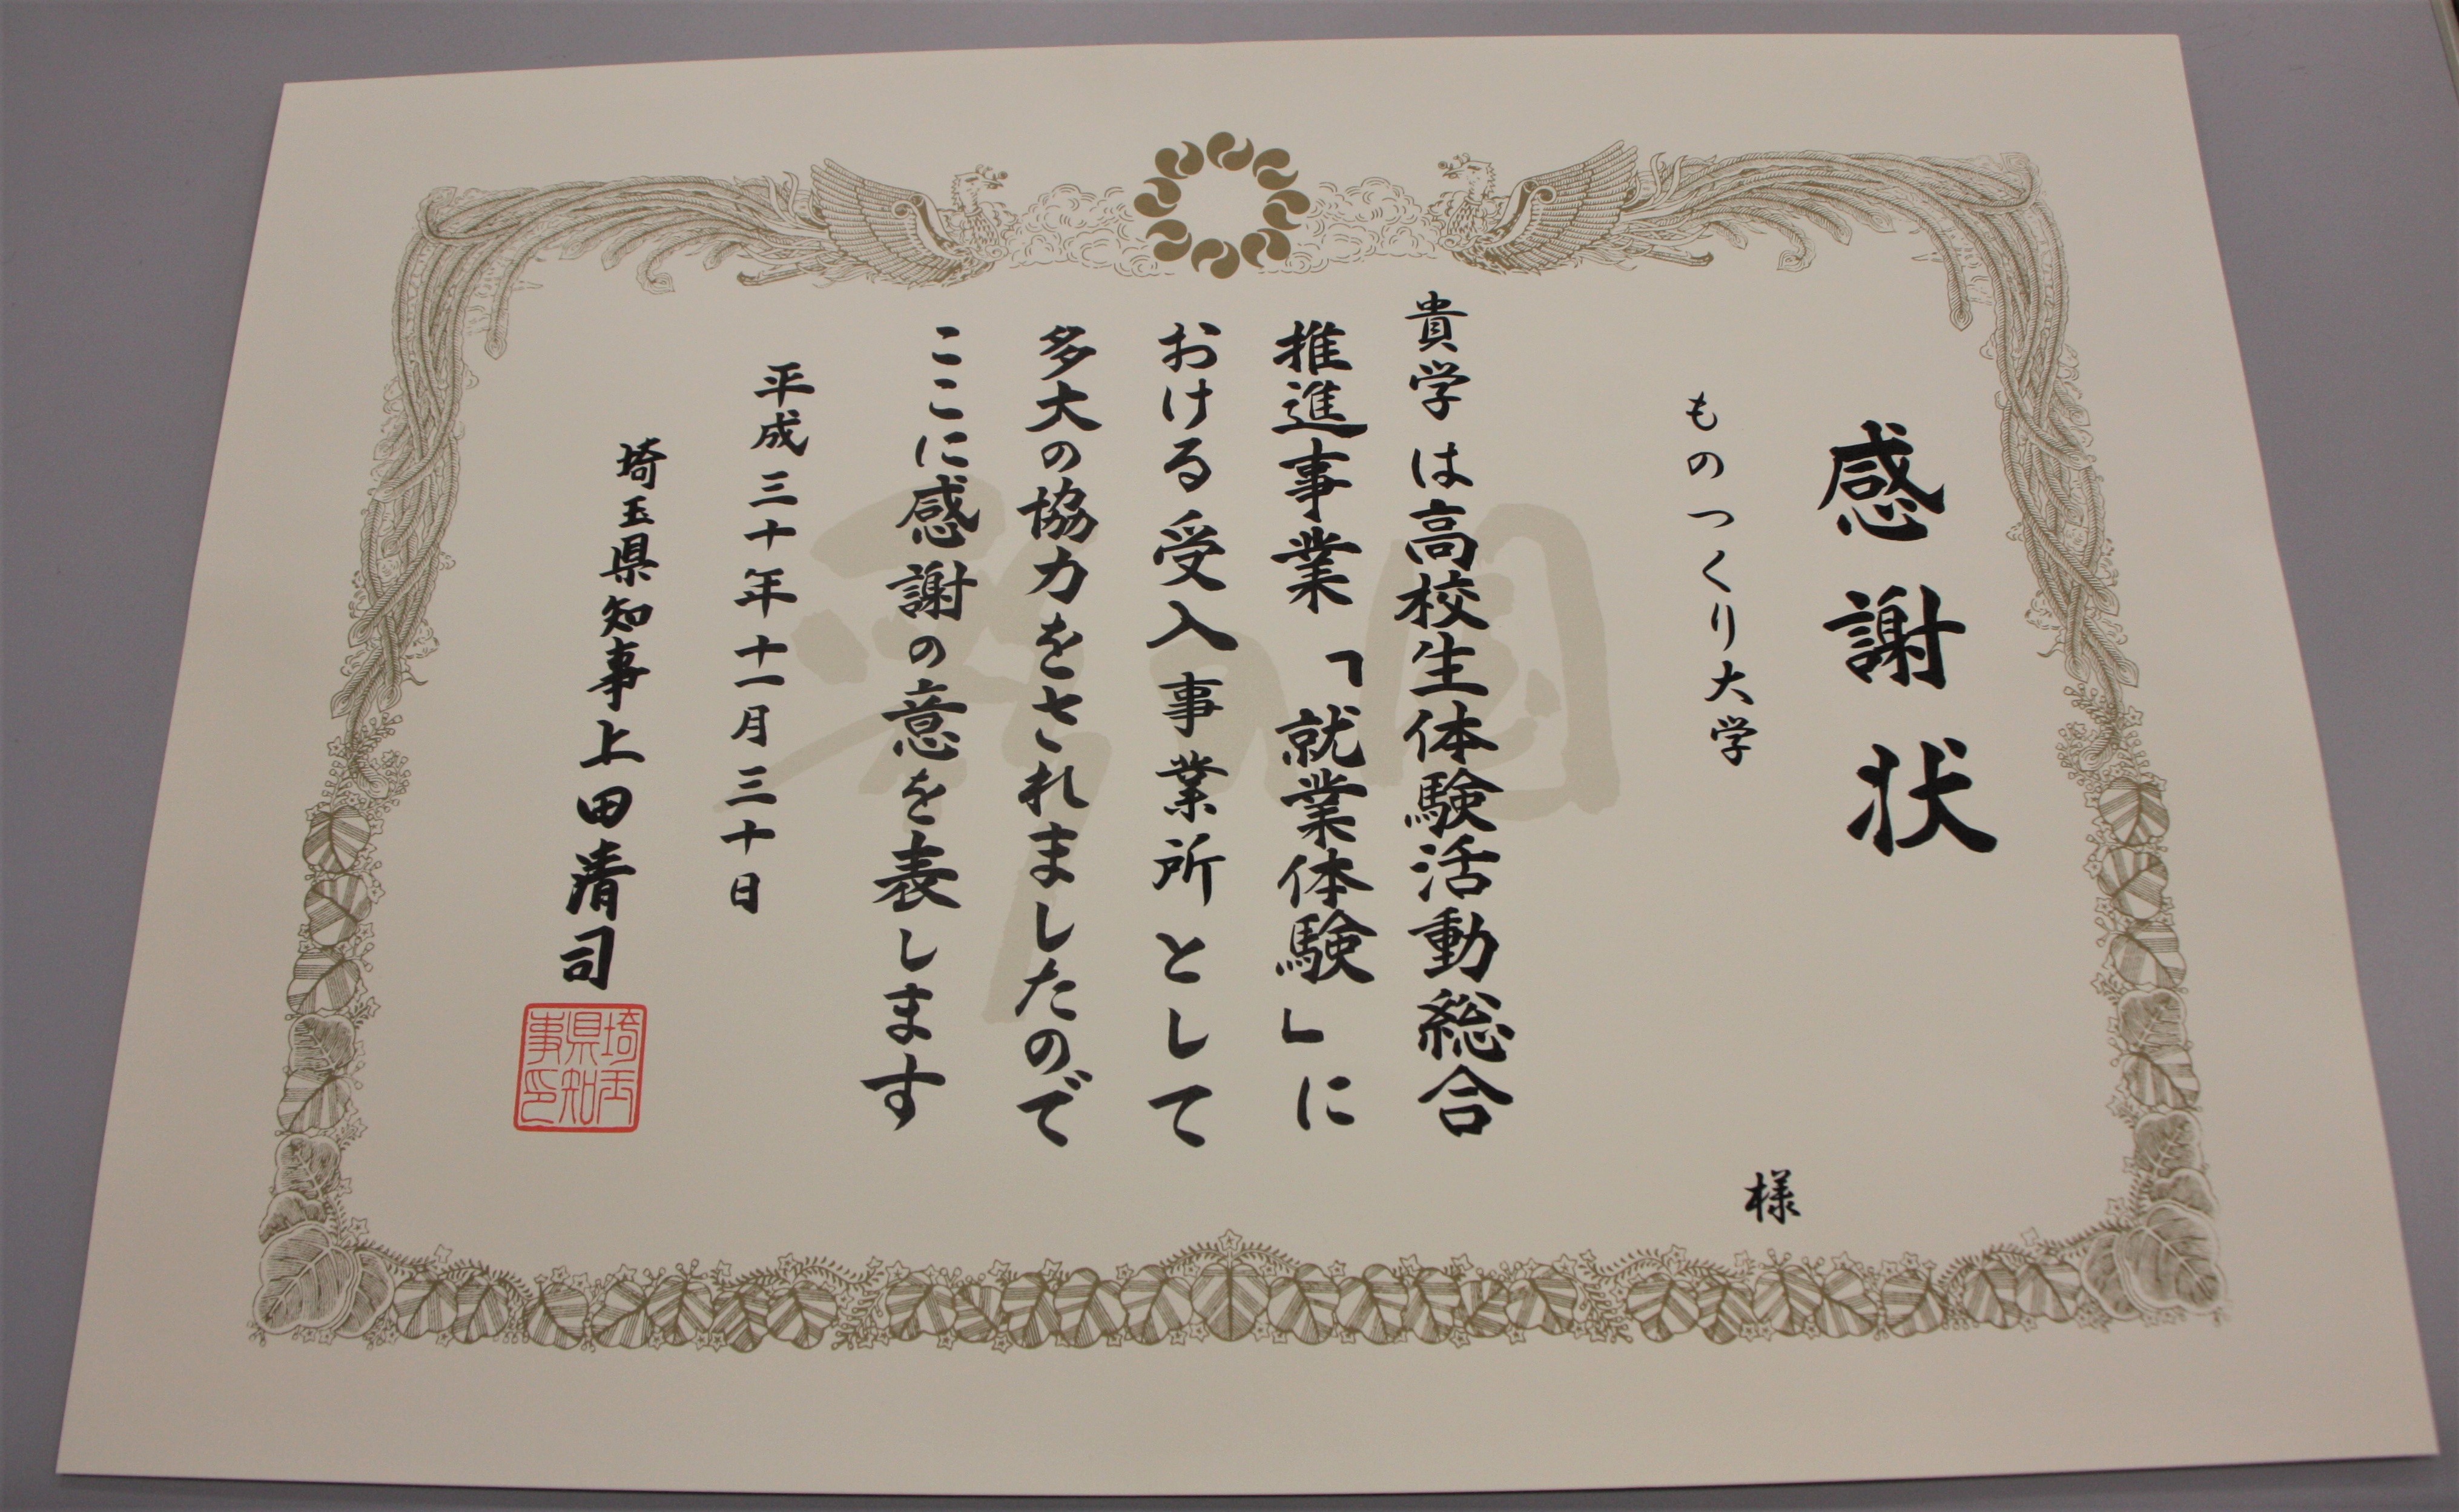 感謝状
ものつくり大学 様
貴学は高校生体験活動総合
推進事業「就業体験」に
おける受入事業所として
多大の協力をされましたので
ここに感謝の意を表します
平成三十年十一月三十日
埼玉県知事上田清司
埼玉県知事印
彩の国